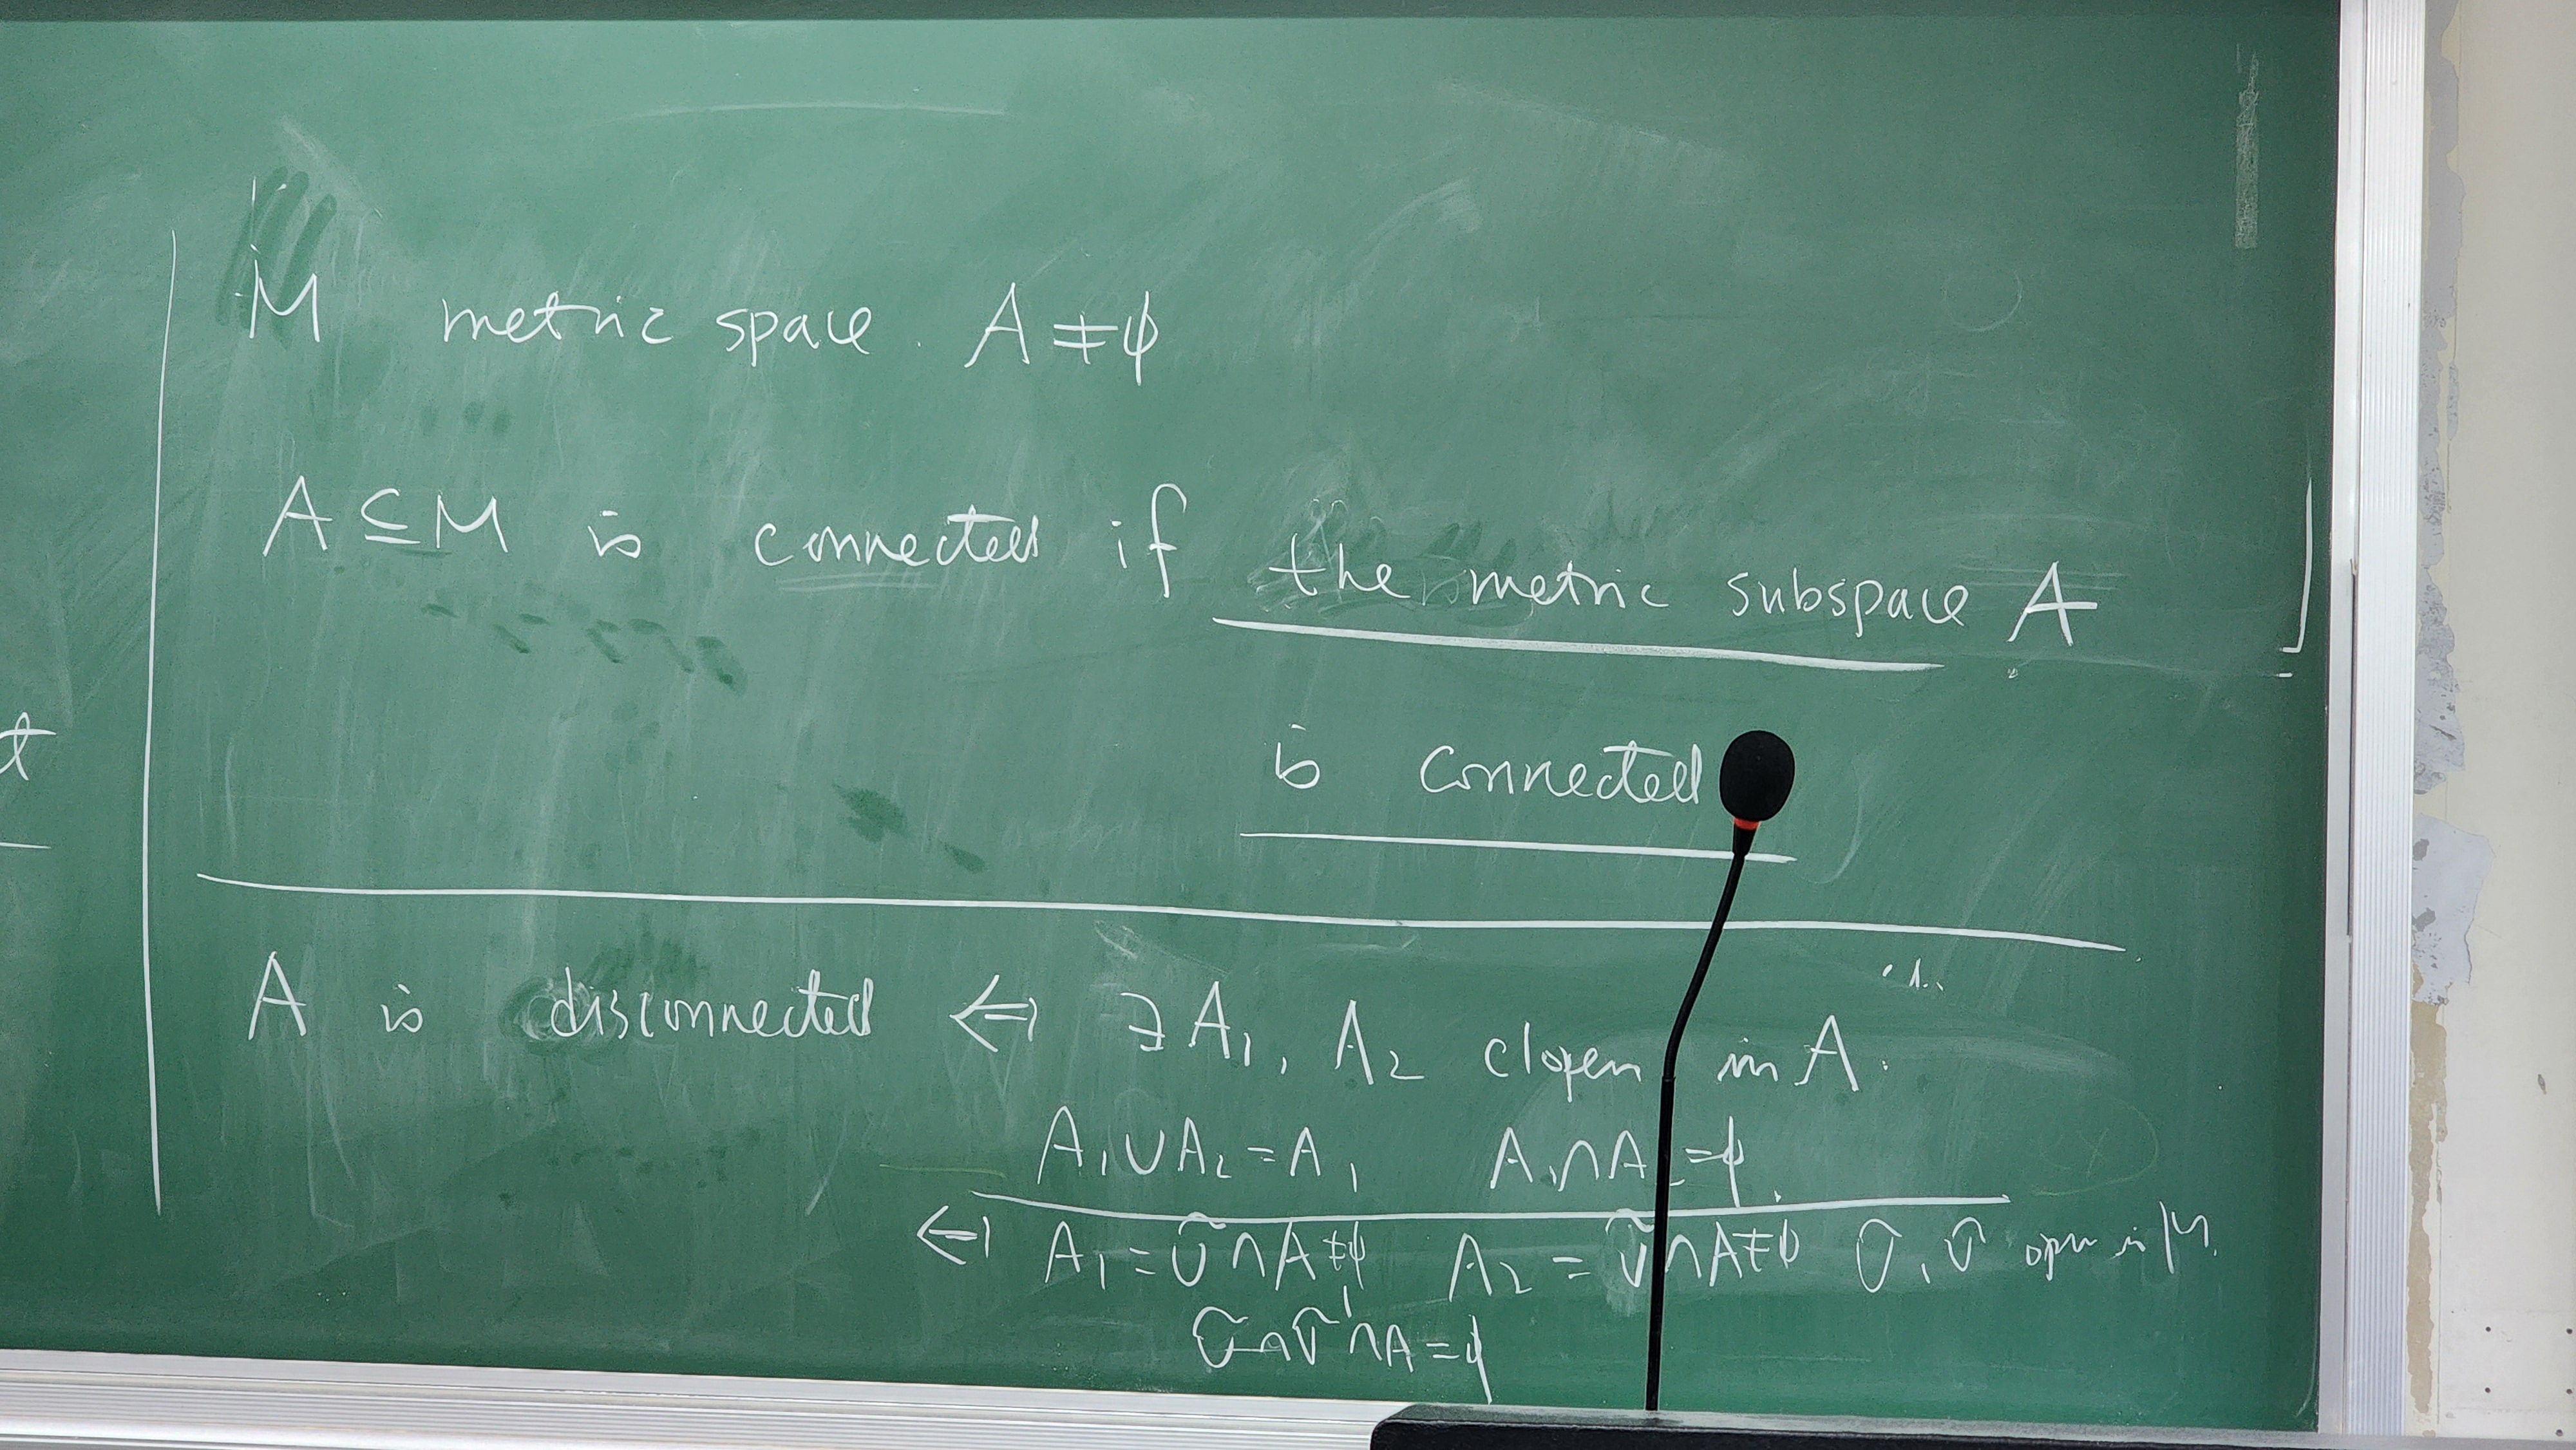 M metric space. A ≠ φ
A ⊆ M is connected if the metric subspace A
is connected
A is disconnected ⟺ ∃ A₁, A₂ clopen in A.
A₁ ∪ A₂ = A, A₁ ∩ A₂ = φ.
⟺ A₁ = Ũ ∩ A ≠ φ, A₂ = Ṽ ∩ A ≠ φ Ũ, Ṽ open in M.
Ũ ∩ Ṽ ∩ A = φ